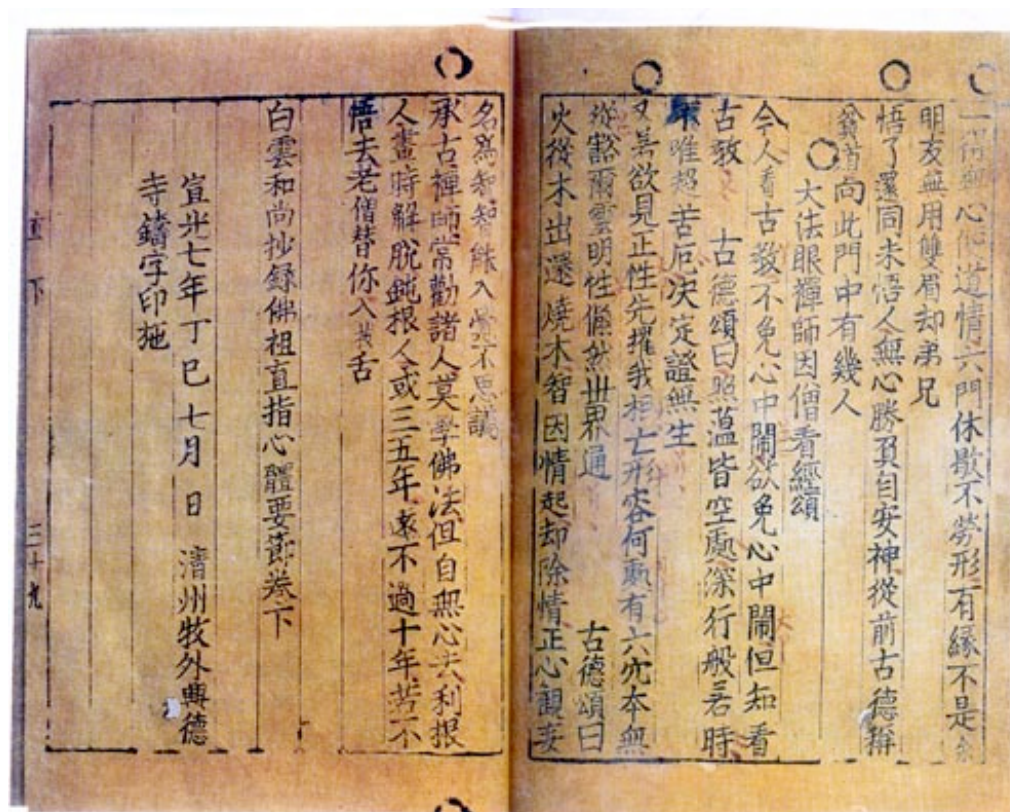 一得無心便道情六門休歇不勞形有緣不是余
明友無用雙眉却弟兄
悟了還同未悟人無心勝負自安神從前古德稱
向此門中有幾人
大法眼禪師因僧看經頌
今人看古教不免心中鬧欲免心中鬧但知看
古教 古德頌曰照蘊皆空處深行般若時
唯超苦厄決定證無生
又若欲見正性先摧我相亡形容何處有六穴本無
從豁爾雲明性翛然世界通 古德頌曰
火從木出還燒木智因情起却除情正心觀妄
名為智智能入覺不思議
承古禪師常勸諸人莫學佛法但自無心去利根
人晝時解脫鈍根人或三五年遠不過十年若不
悟去老僧替你入拔舌
白雲和尚抄錄佛祖直指心體要節卷下
宣光七年丁巳七月 日 清州牧外興德
寺鑄字印施
直下 三十九